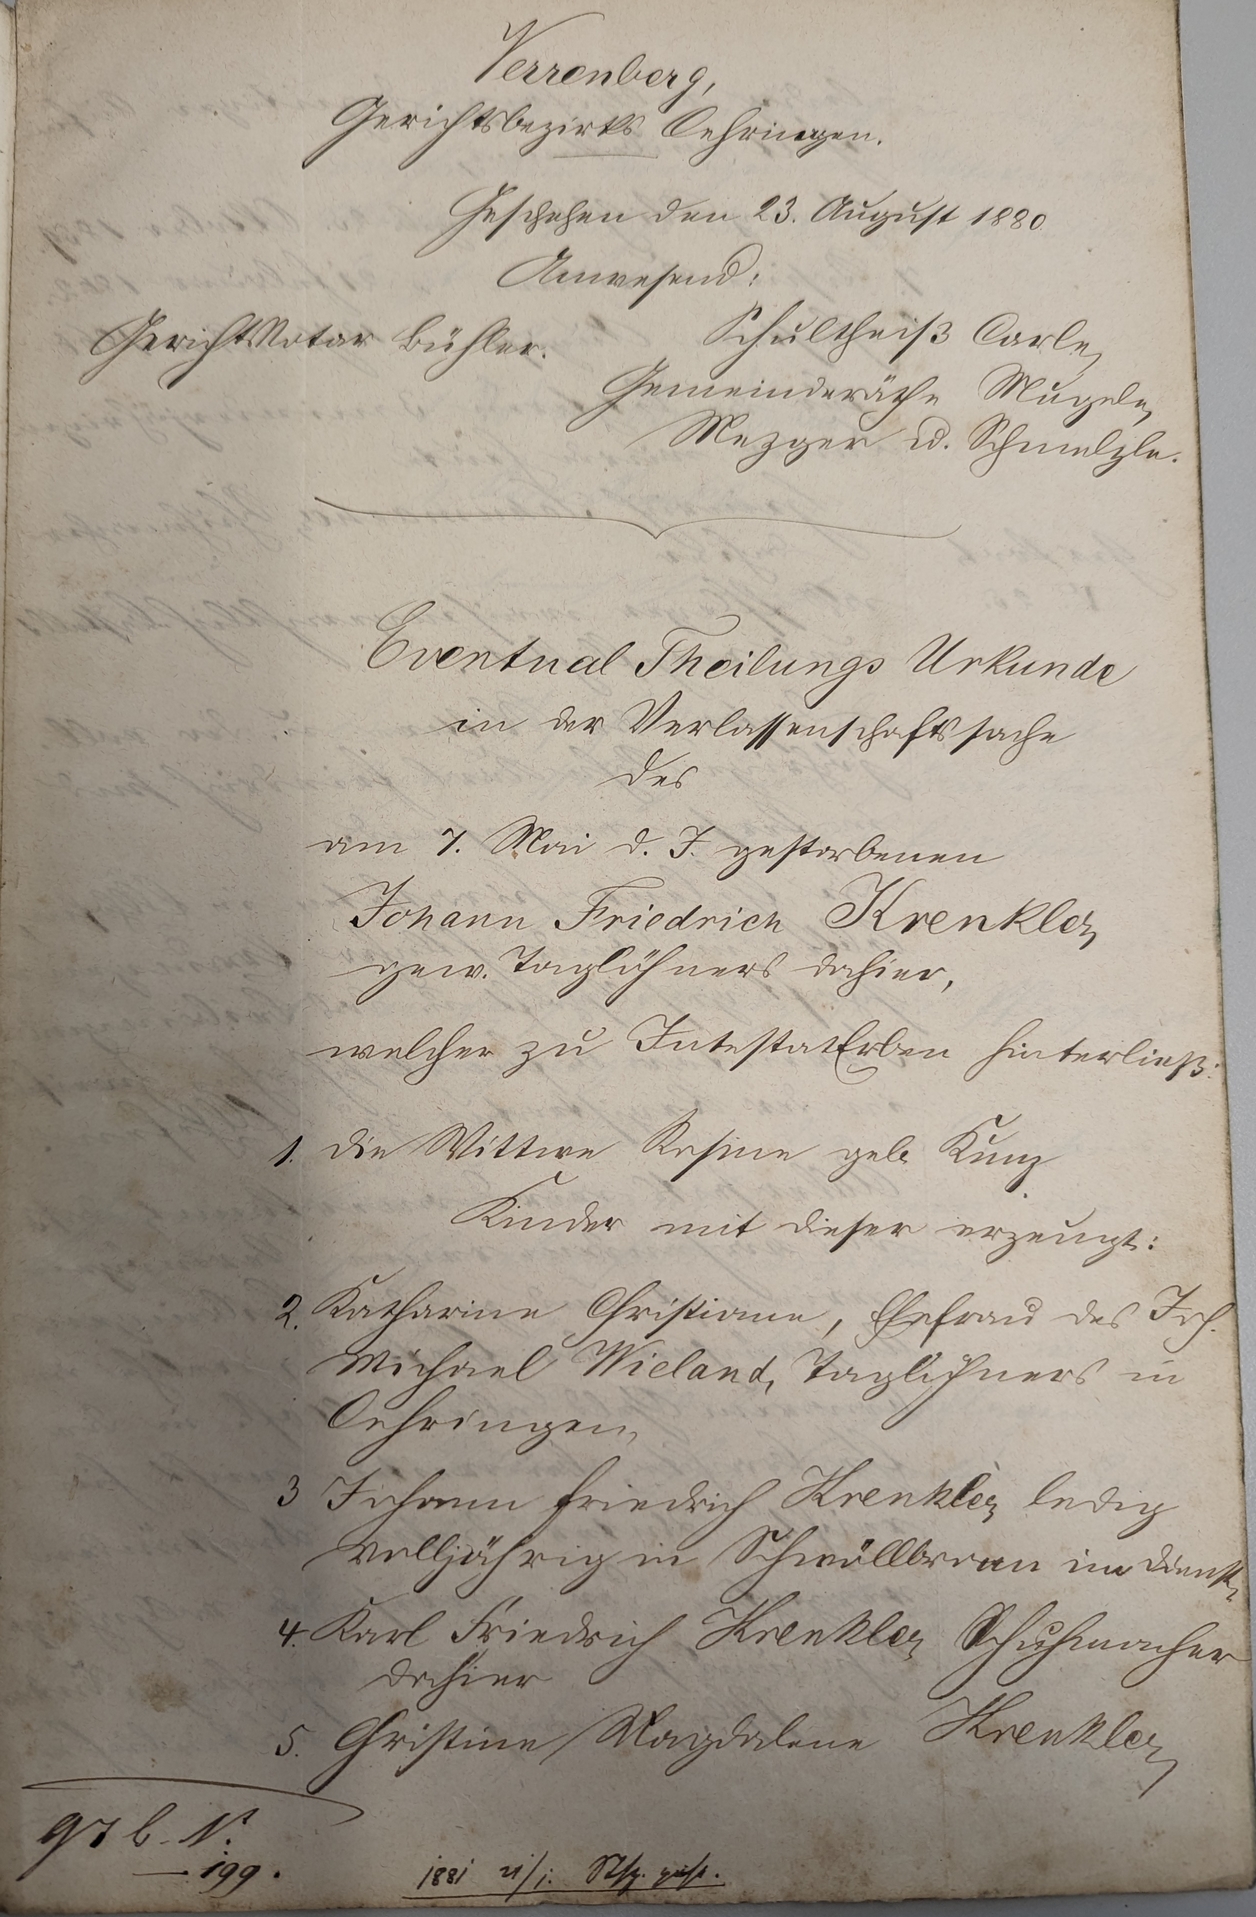 Verrenberg,
Gerichtsbezirks Oehringen.
Geschehen den 23. August 1880
Anwesend:
Gerichtsnotar Bühler.
Schultheiß Carle,
Gemeinderäthe Mugele,
Mezger u. Schmelzle.
Eventual Theilungs Urkunde
in der Verlassenschaftssache
des
am 7. Mai d. J. gestorbenen
Johann Friedrich Krenkler,
gew. Taglöhners dahier,
welcher zu IntestatErben hinterließ:
1. die Wittwe Rosine geb. Kunz
Kinder mit dieser erzeugt:
2. Katharine Christiane, Ehefrau des Joh.
Michael Wieland, Taglöhners in
Oehringen,
3 Johann Friedrich Krenkler, ledig
volljährig in Schwöllbronn im Dienst,
4. Karl Friedrich Krenkler, Schuhmacher
dahier
5. Christine Magdalene Krenkler,
97 b. N.
— 199.
1881 21/1.